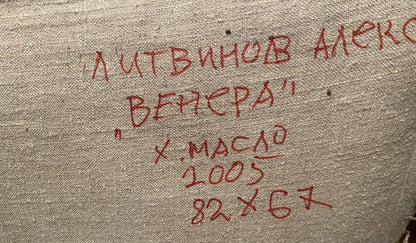 ЛИТВИНОВ АЛЕКС
"ВЕНЕРА"
Х. МАСЛО
2005
82 X 67